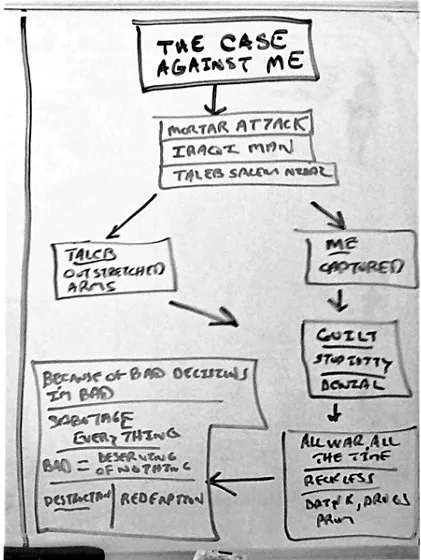 THE CASE
AGAINST ME
MORTAR ATTACK
IRAQI MAN
TALEB SALEM NIDAL
TALEB
OUTSTRETCHED
ARMS
ME
CAPTURED
GUILT
STUPIDITY
DENIAL
BECAUSE OF BAD DECISIONS
I'M BAD
SABOTAGE
EVERYTHING
BAD = DESERVING
OF NOTHING
DESTRUCTION | REDEMPTION
ALL WAR, ALL
THE TIME
RECKLESS
DRINK, DRUGS